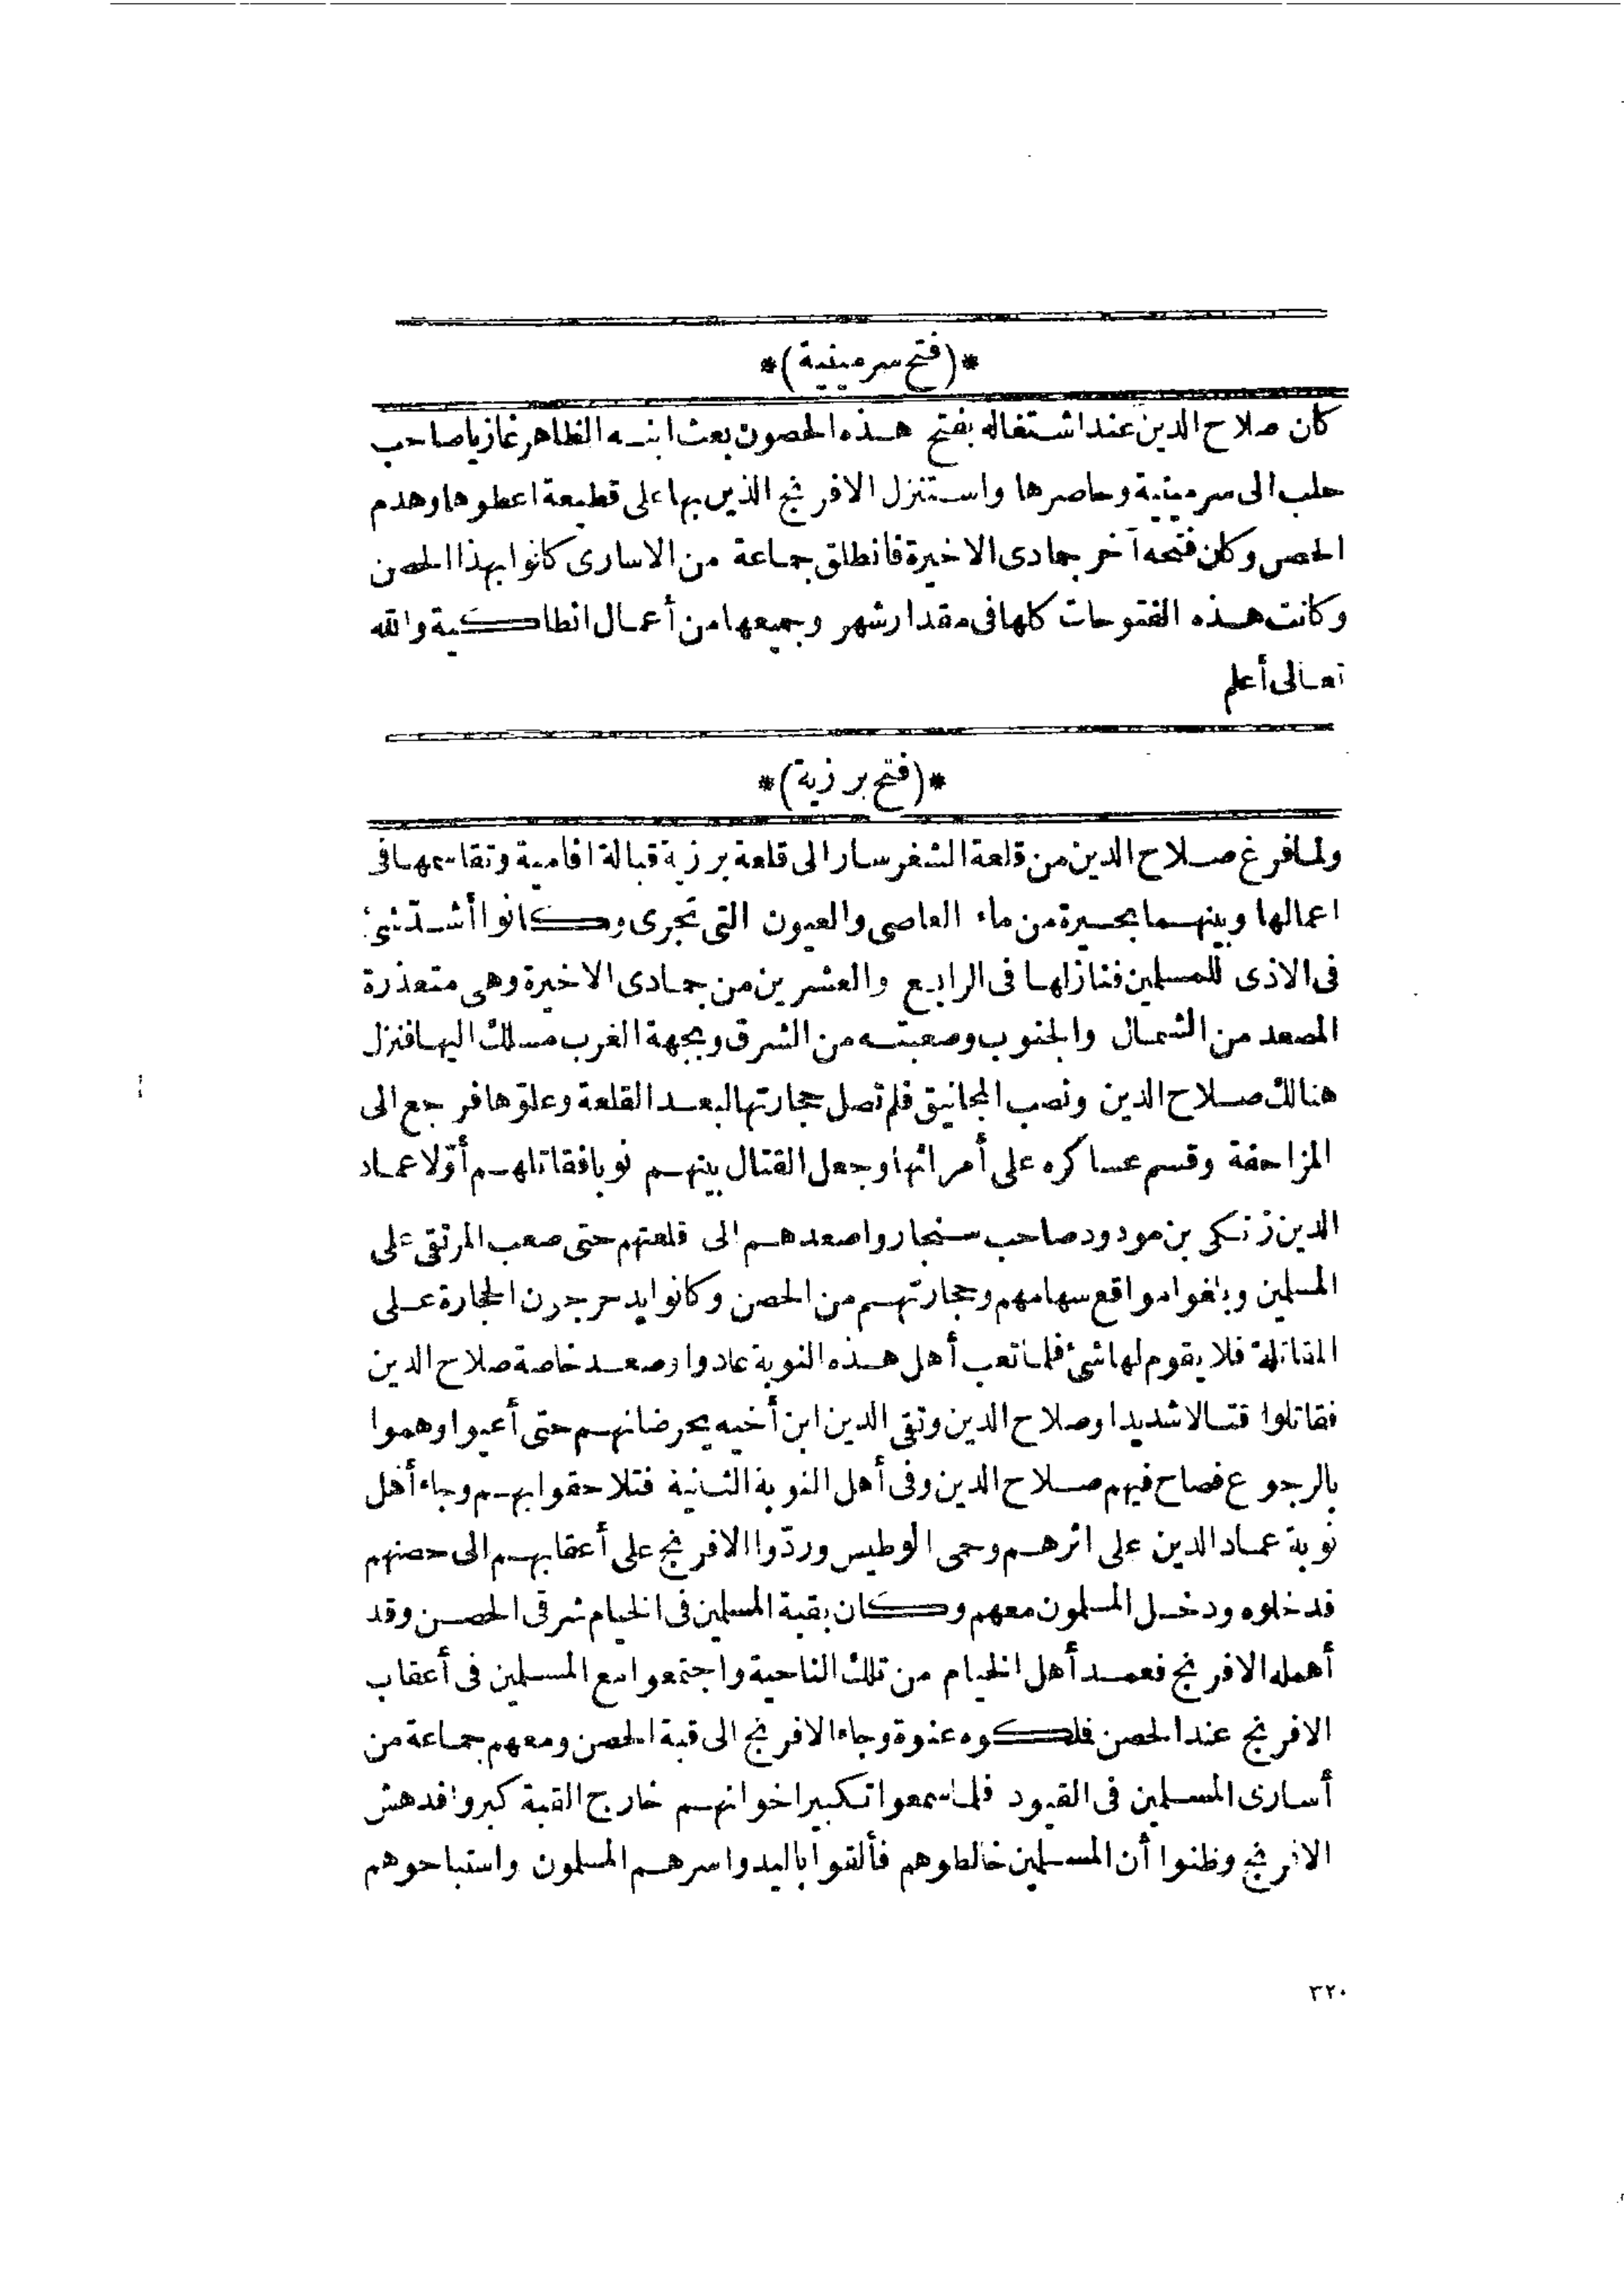 *(فتح سرمينية)*
كان صلاح الدين عند اشتغاله بفتح هذه الحصون بعث ابنه الظاهر غازيا صاحب
حلب الى سرمينية وحاصرها واستنزل الافرنج الذين بها على قطيعة اعطوها وهدم
الحصن وكان فتحه آخر جمادى الاخيرة فانطلق جماعة من الاسارى كانوا بهذا الحصن
وكانت هذه الفتوحات كلها فى مقدار شهر وجميعها من أعمال انطاكية والله
تعالى أعلم
*(فتح برزية)*
ولما فرغ صلاح الدين من قلعة الشغر سار الى قلعة برزية قبالة افامية وتقاسمها فى
اعمالها وبينهما بحيرة من ماء العاصى والعيون التى تجرى وكانوا أشد شئ
فى الاذى للمسلمين فنازلها فى الرابع والعشرين من جمادى الاخيرة وهى متعذرة
المصعد من الشمال والجنوب وصعبته من الشرق وبجهة الغرب مسلك اليها فنزل
هنالك صلاح الدين ونصب المجانيق فلم تصل حجارتها لبعد القلعة وعلوها فرجع الى
المزاحفة وقسم عساكره على أمرائها وجعل القتال بينهم نوبا فقاتلهم أوّلا عماد
الدين زنكى بن مودود صاحب سنجار واصعدهم الى قلعتهم حتى صعب المرتقى على
المسلمين وبلغوا مواقع سهامهم وحجارتهم من الحصن وكانوا يدحرجون الحجارة على
المقاتلة فلا يقوم لها شئ فلما تعب أهل هذه النوبة عادوا وصعد خاصة صلاح الدين
فقاتلوا قتالا شديدا وصلاح الدين وتقى الدين ابن أخيه يحرضانهم حتى أعيوا وهموا
بالرجوع فصاح فيهم صلاح الدين وفى أهل النوبة الثانية فتلاحقوا بهم وجاء أهل
نوبة عماد الدين على اثرهم وحمى الوطيس وردّوا الافرنج على أعقابهم الى حصنهم
فدخلوه ودخل المسلمون معهم وكان بقية المسلمين فى الخيام شرقى الحصن وقد
أهمله الافرنج فعمد أهل الخيام من تلك الناحية واجتمعوا مع المسلمين فى أعقاب
الافرنج عند الحصن فملكوه عنوة وجاء الافرنج الى قبة الحصن ومعهم جماعة من
أسارى المسلمين فى القيود فلما سمعوا تكبير اخوانهم خارج القبة كبروا فدهش
الافرنج وظنوا أن المسلمين خالطوهم فألقوا باليد واسرهم المسلمون واستباحوهم
٣٢٠